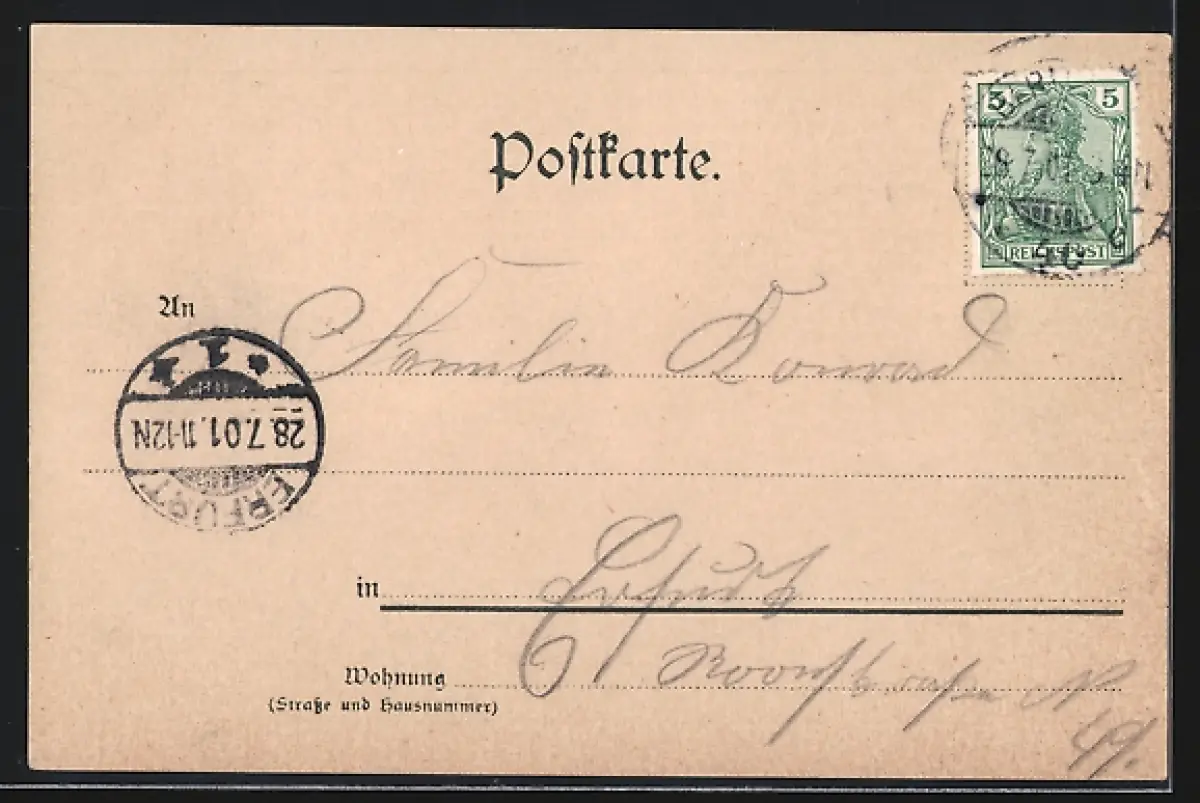 Postkarte.
5 5
REICHSPOST
An
Familie Konrad
28.7.01.11-12N
ERFURT
1
in
Erfurt
Wohnung
Roonstraße N
(Straße und Hausnummer)
49.